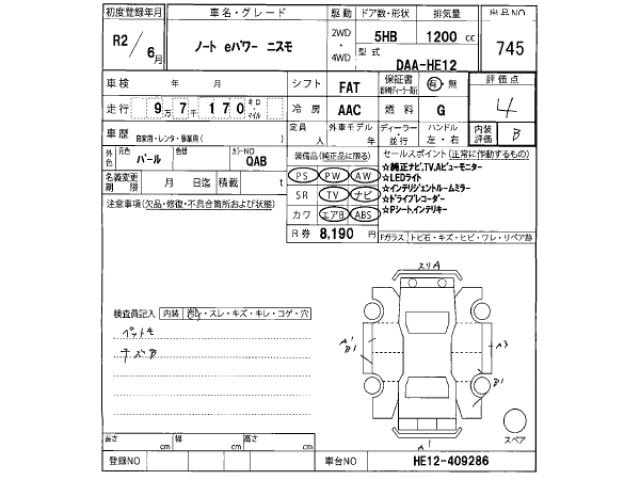 初度登録年月 車名・グレード 駆動 ドア数・形状 排気量 出品NO
R2/6月 ノート eパワー ニスモ 2WD・4WD 5HB 1200 cc 745
型式 DAA-HE12
車検 年 月 シフト FAT 保証書 有・無 評価点
走行 9万7千170 キロ・マイル 冷房 AAC 燃料 G 4
車歴 自家用・レンタ・事業用( ) 定員 人 外車モデル 年 ディーラー・並行 ハンドル 左・右 内装評価 B
外色 元色 パール 色替 カラーNO QAB 装備品(純正品に限る) セールスポイント(正常に作動するもの)
名義変更期限 月 日迄 積載 t PS PW AW ☆純正ナビ,TV,Aビューモニター
☆LEDライト
注意事項(欠品・修復・不具合箇所および状態) SR TV ナビ ☆インテリジェントルームミラー
☆ドライブレコーダー
カワ エアB ABS ☆Pシート,インテリキー
R券 8,190 円 Fガラス トビ石・キズ・ヒビ・ワレ・リペア跡
スリA
検査員記入 内装 ・スレ・キズ・キレ・コゲ・穴
ペットモ
チズB
A1
B1
A3
B1
A1
スペア
長さ cm 幅 cm 高さ cm
登録NO 車台NO HE12-409286